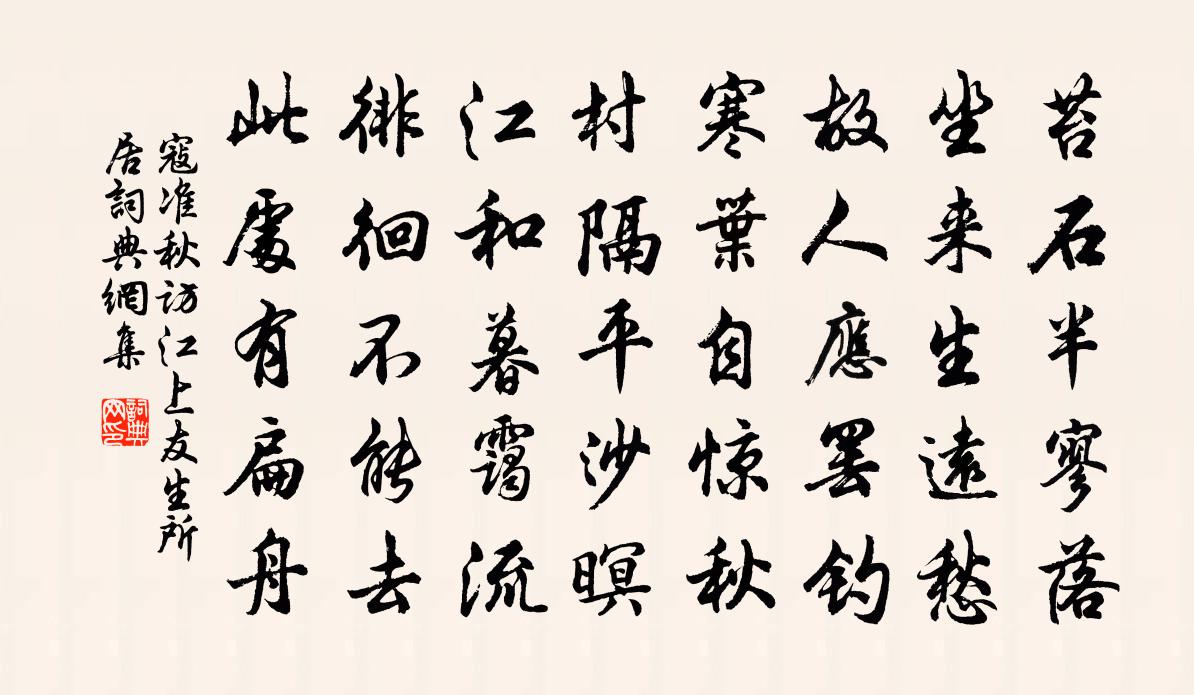 苔石半寥落
坐来生遠愁
故人應罢釣
寒葉自惊秋
村隔平沙暝
江和暮靄流
徘徊不能去
此處有扁舟
寇准秋访江上友生所
居詞典網集
詞典
网印